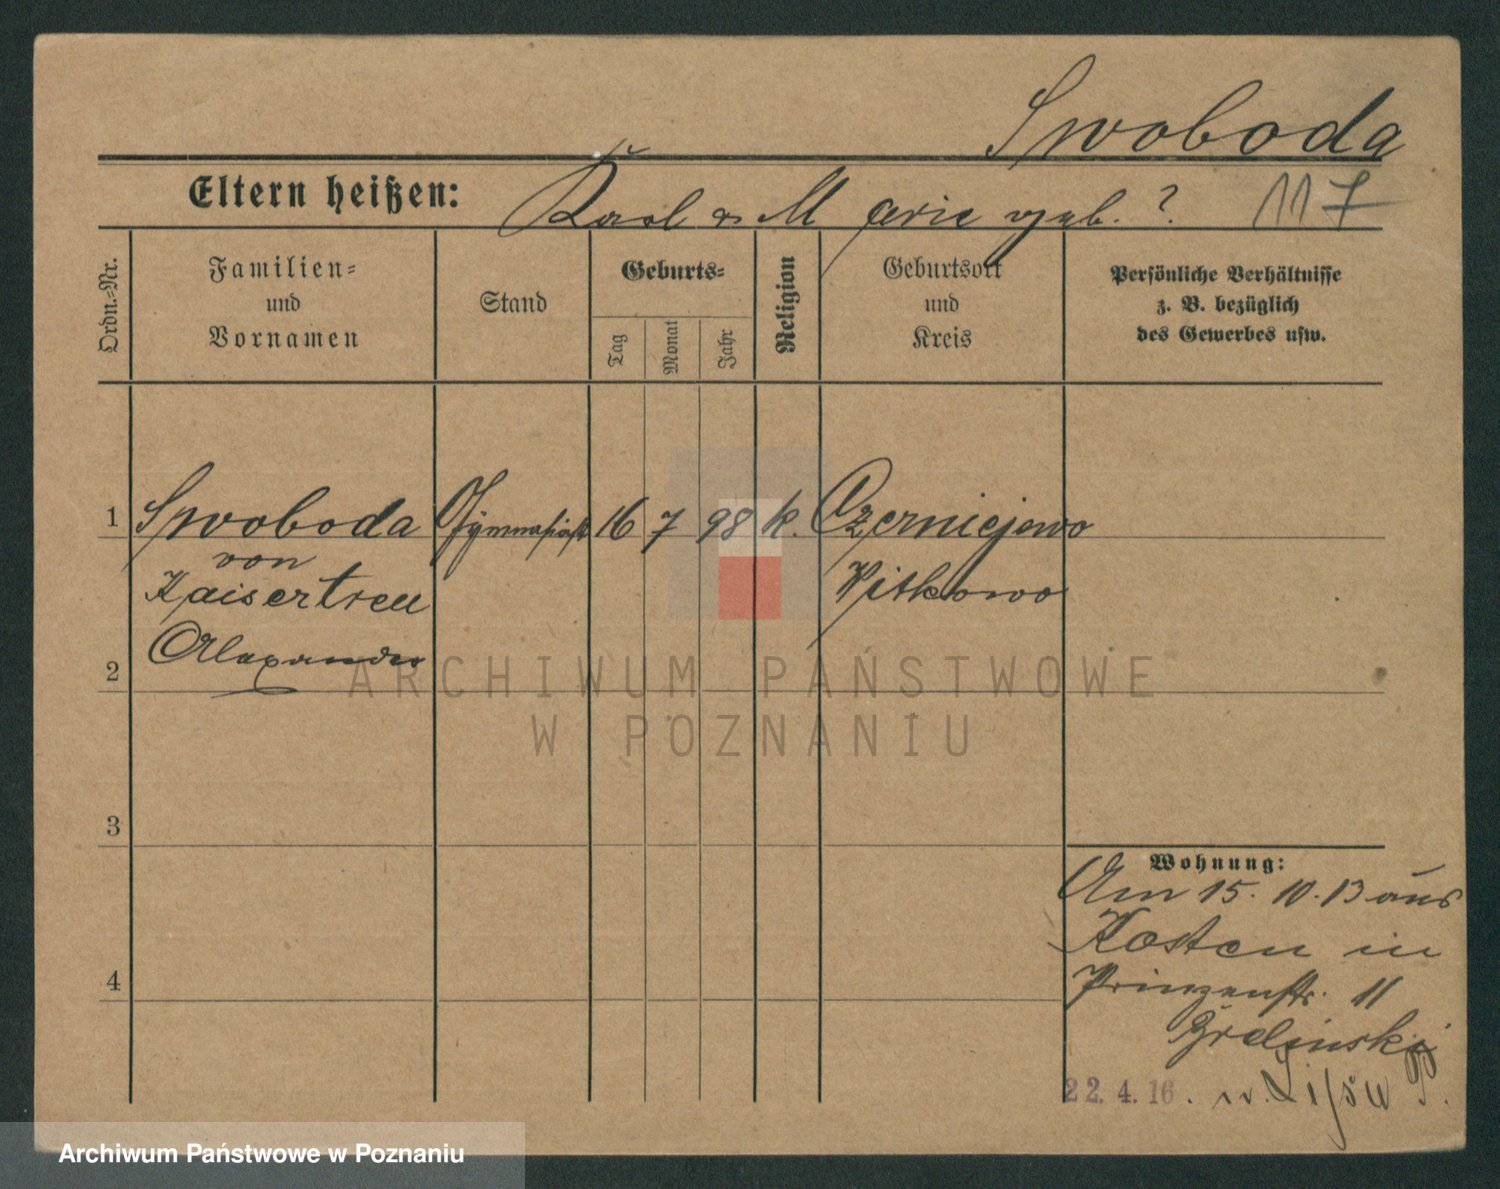 Swoboda
Eltern heißen: Karl u Marie geb. ?
117
Ordn.-Nr.
Familien-
und
Vornamen
Stand
Geburts-
Tag
Monat
Jahr
Religion
Geburtsort
und
Kreis
Persönliche Verhältnisse
z. B. bezüglich
des Gewerbes usw.
1 Swoboda Gymnasiast 16 7 98 k. Czerniejewo
von
Kaisertreu Witkowo
Alexander
2
ARCHIWUM PAŃSTWOWE
W POZNANIU
3
Wohnung:
Am 15. 10. 13 aus
Kosten in
4
Prinzenstr. 11
22. 4. 16. n.
Archiwum Państwowe w Poznaniu